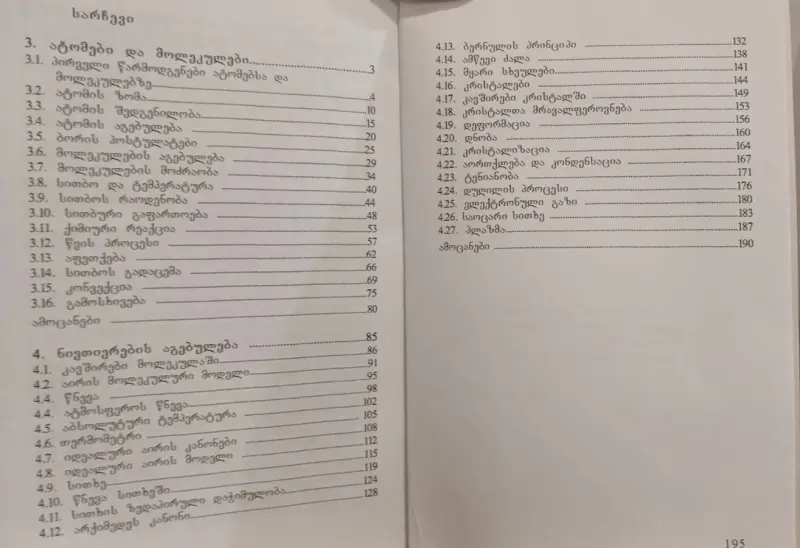 სარჩევი
3. ატომები და მოლეკულები
3.1. პირველი წარმოდგენები ატომებსა და
მოლეკულებზე 3
3.2. ატომის ზომა 4
3.3. ატომის შედგენილობა 10
3.4. ატომის აგებულება 15
3.5. ბორის პოსტულატები 20
3.6. მოლეკულების აგებულება 25
3.7. მოლეკულების მოძრაობა 29
3.8. სითბო და ტემპერატურა 34
3.9. სითბოს რაოდენობა 40
3.10. სითბური გაფართოება 44
3.11. ქიმიური რეაქცია 48
3.12. წვის პროცესი 53
3.13. აფეთქება 57
3.14. სითბოს გადაცემა 62
3.15. კონვექცია 66
3.16. გამოსხივება 69
ამოცანები 75
80
4. ნივთიერების აგებულება 85
4.1. კავშირები მოლეკულაში 86
4.2. აირის მოლეკულური მოდელი 91
4.4. წნევა 95
4.4. ატმოსფეროს წნევა 98
4.5. აბსოლუტური ტემპერატურა 102
4.6. თერმომეტრი 105
4.7. იდეალური აირის კანონები 108
4.8. იდეალური აირის მოდელი 112
4.9. სითხე 115
4.10. წნევა სითხეში 119
4.11. სითხის ზედაპირული დაჭიმულობა 124
4.12. არქიმედეს კანონი 128
4.13. ბერნულის პრინციპი 132
4.14. ამწევი ძალა 138
4.15. მყარი სხეულები 141
4.16. კრისტალები 144
4.17. კავშირები კრისტალში 149
4.18. კრისტალთა მრავალფეროვნება 153
4.19. დეფორმაცია 156
4.20. დნობა 160
4.21. კრისტალიზაცია 164
4.22. აორთქლება და კონდენსაცია 167
4.23. ტენიანობა 171
4.24. დუღილის პროცესი 176
4.25. ელექტრონული გაზი 180
4.26. საოცარი სითხე 183
4.27. პლაზმა 187
ამოცანები 190
195